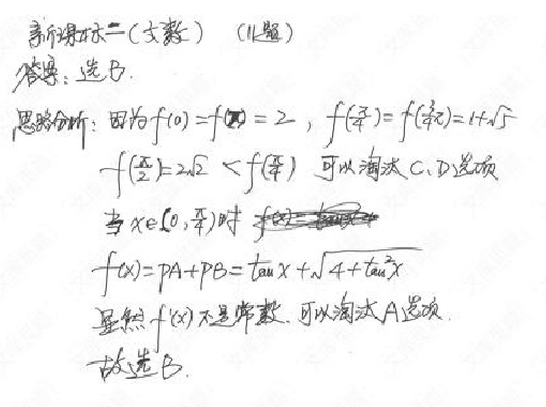 新课标二(文数) (11题)
答案:选B.
思路分析:因为f(0)=f(π)=2, f(π/4)=f(3/4π)=1+√5
f(π/2)=2√2 < f(π/4) 可以淘汰C、D选项
当x∈[0,π/4)时
f(x)=PA+PB=tanx+√(4+tan²x)
显然f(x)不是常数、可以淘汰A选项.
故选B.